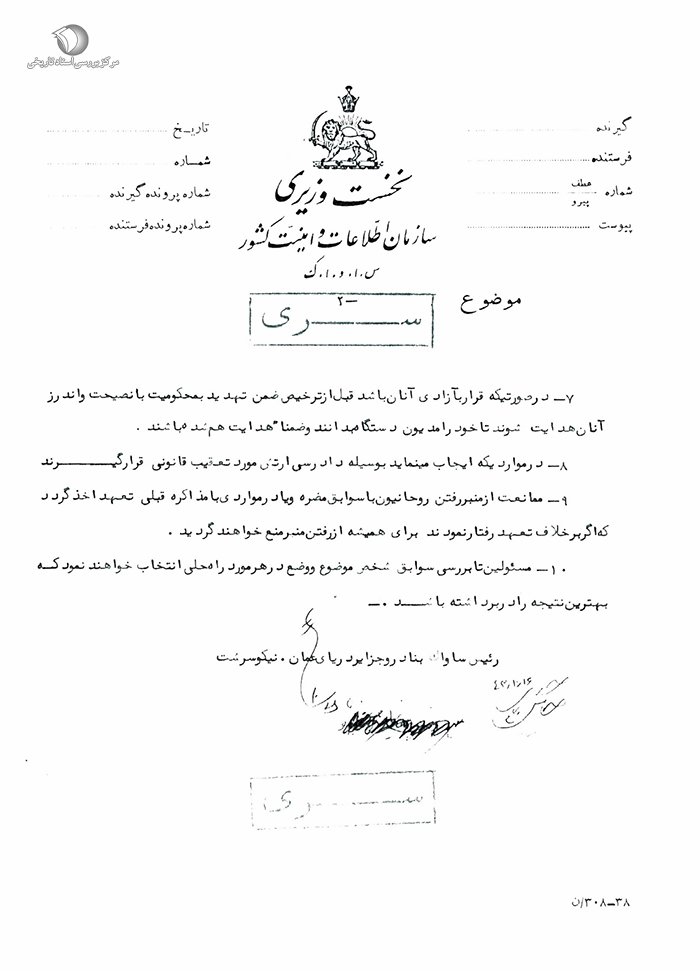 مرکز بررسی اسناد تاریخی
گیرنده
فرستنده
شماره عطف
پیرو
پیوست
تاریخ
شماره
شماره پرونده گیرنده
شماره پرونده فرستنده
نخست وزیری
سازمان اطلاعات و امنیت کشور
س.ا.و.ا.ک
موضوع
۲-
سری
۷- در صورتیکه قرار بآزادی آنان باشد قبل از ترخیص ضمن تهدید بمحکومیت با نصیحت و اندرز
آنان هدایت شوند تا خود را مدیون دستگاه دانند و ضمنا" هدایت هم شده باشند .
۸- در مواردیکه ایجاب مینماید بوسیله دادرسی ارتش مورد تعقیب قانونی قرار گیرند
۹- ممانعت از منبر رفتن روحانیون با سوابق مضره و یا در مواردی با مذاکره قبلی تعهد اخذ گردد
که اگر برخلاف تعهد رفتار نمودند برای همیشه از رفتن منبر منع خواهند گردید .
۱۰- مسئولین با بررسی سوابق شخص موضوع و وضع در هر مورد راه حلی انتخاب خواهند نمود که
بهترین نتیجه را در برداشته باشد .-
رئیس ساواک بنادر و جزایر دریای عمان . نیکوسرشت
سری
۳۰۸-۳۸/ن